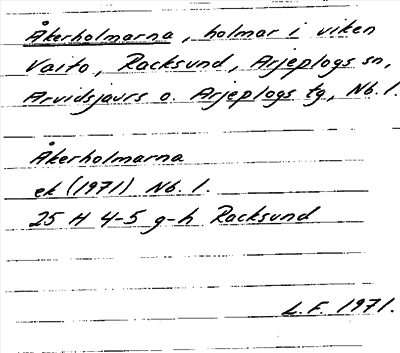 Åkerholmarna, holmar i viken
Vaito, Racksund, Arjeplogs sn,
Arvidsjaurs o. Arjeplogs tg, Nb. l.
Åkerholmarna
ek (1971) Nb. l.
25 H 4-5 g-h Racksund
L.F. 1971.